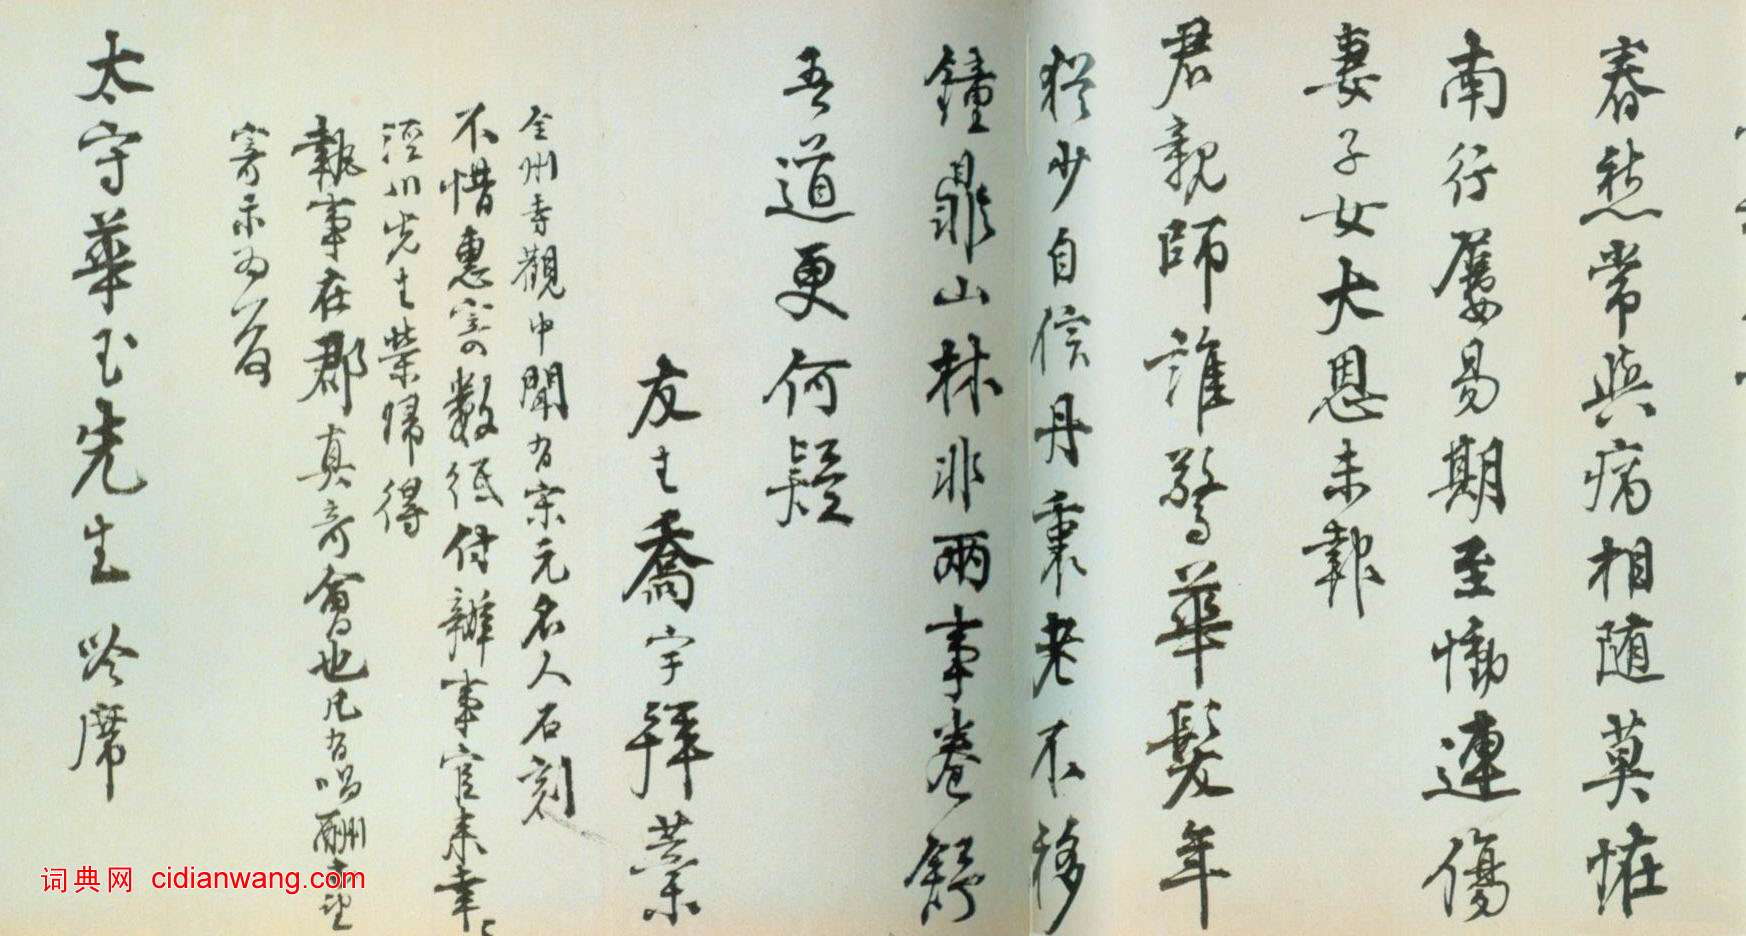 春愁常與病相随莫怪
南行屢易期至慟連傷
妻子女大恩未報
君親師誰驚華髮年
猶少自信丹衷老不移
鐘鼎山林非兩事卷舒
吾道更何疑
友生喬宇拜稾
全州寺觀中聞有宋元名人石刻
不惜惠寄數紙付辦事官来幸
涇川先生榮歸得
執事在郡真奇會也凡有唱酬望
寄示為荷
太守華玉先生吟席
词典网 cidianwang.com